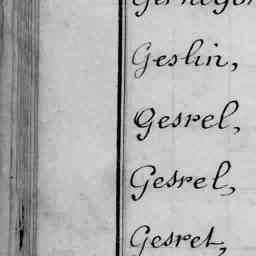 Geslin,
Gesrel,
Gesrel,
Gesret,